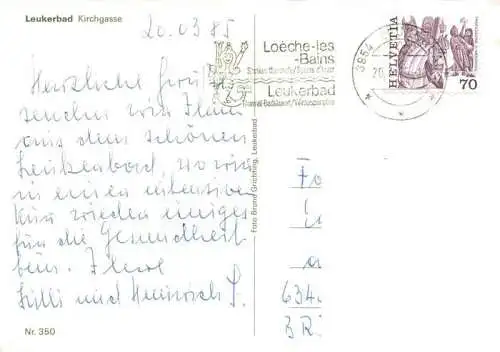 Leukerbad Kirchgasse
20.03.85
Loèche-les
-Bains
Leukerbad
3954
HELVETIA
70
Herzliche Grüße
senden wir Ihnen
aus dem schönen
Leukerbad, wo wir
in einer intensiven
Kur wieder einiges
für die Gesundheit
tun. Ihre
Lilli und Heinrich P.
Foto Bruno Grichting, Leukerbad
634
BR
Nr. 350